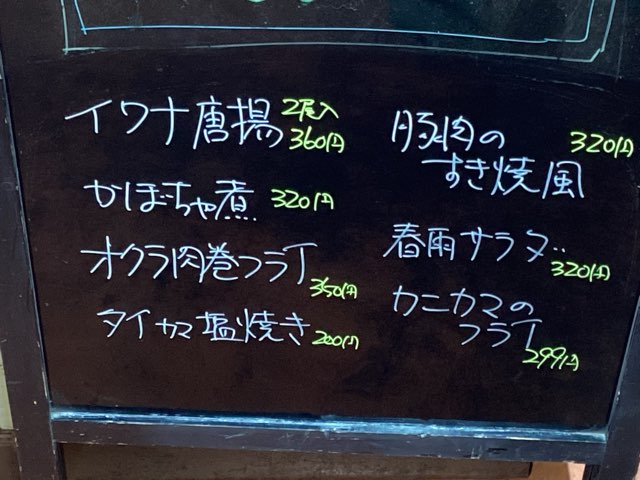 イワナ唐揚 2尾入
360円
かぼちゃ煮 320円
オクラ肉巻フライ
350円
タイカマ塩焼き 200円
豚肉の
すき焼風 320円
春雨サラダ
320円
カニカマの
フライ
299円